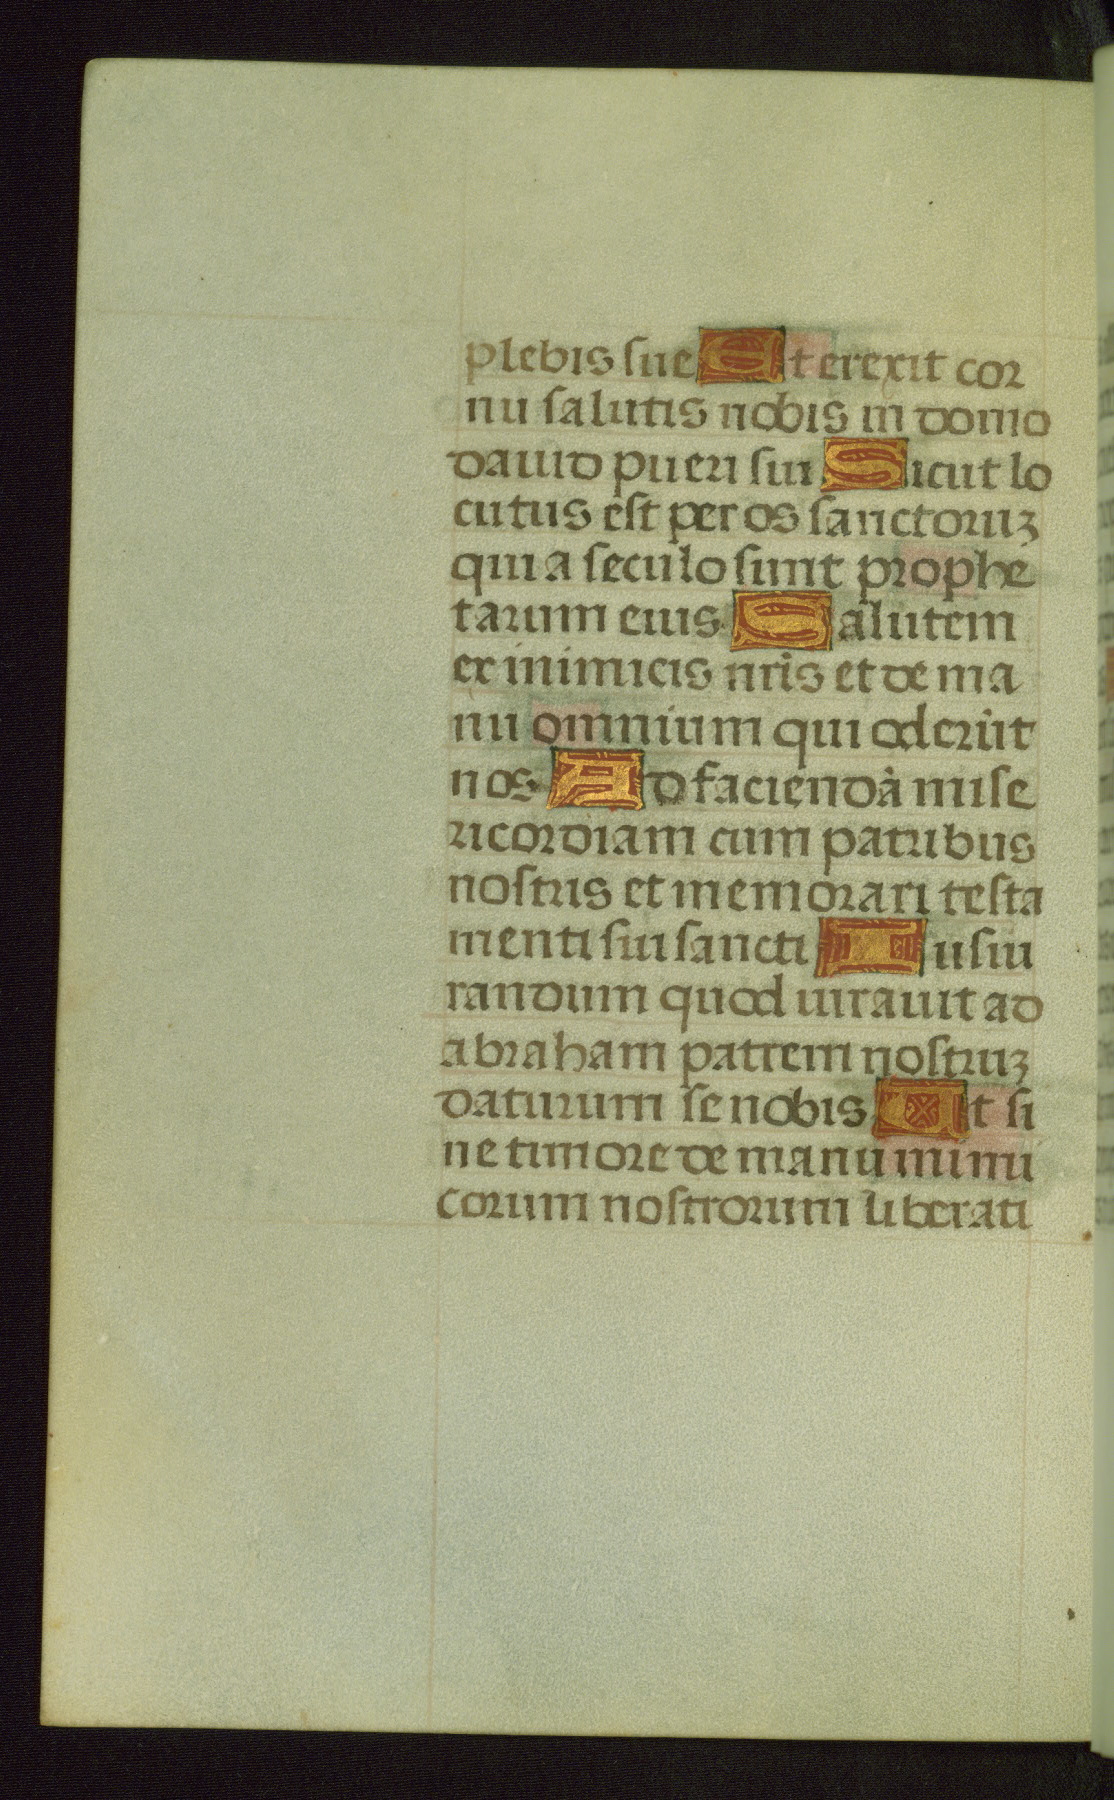 plebis sue Et erexit cor
nu salutis nobis in domo
dauid pueri sui Sicut lo
cutus est per os sanctoruꝫ
qui a seculo sunt prophe
tarum eius Salutem
ex inimicis nr̄is et de ma
nu omnium qui oderūt
nos Ad faciendā mise
ricordiam cum patribus
nostris et memorari testa
menti sui sancti Iusiu
randum quod iurauit ad
abraham patrem nostruꝫ
daturum se nobis Ut si
ne timore de manu inimi
corum nostrorum liberati